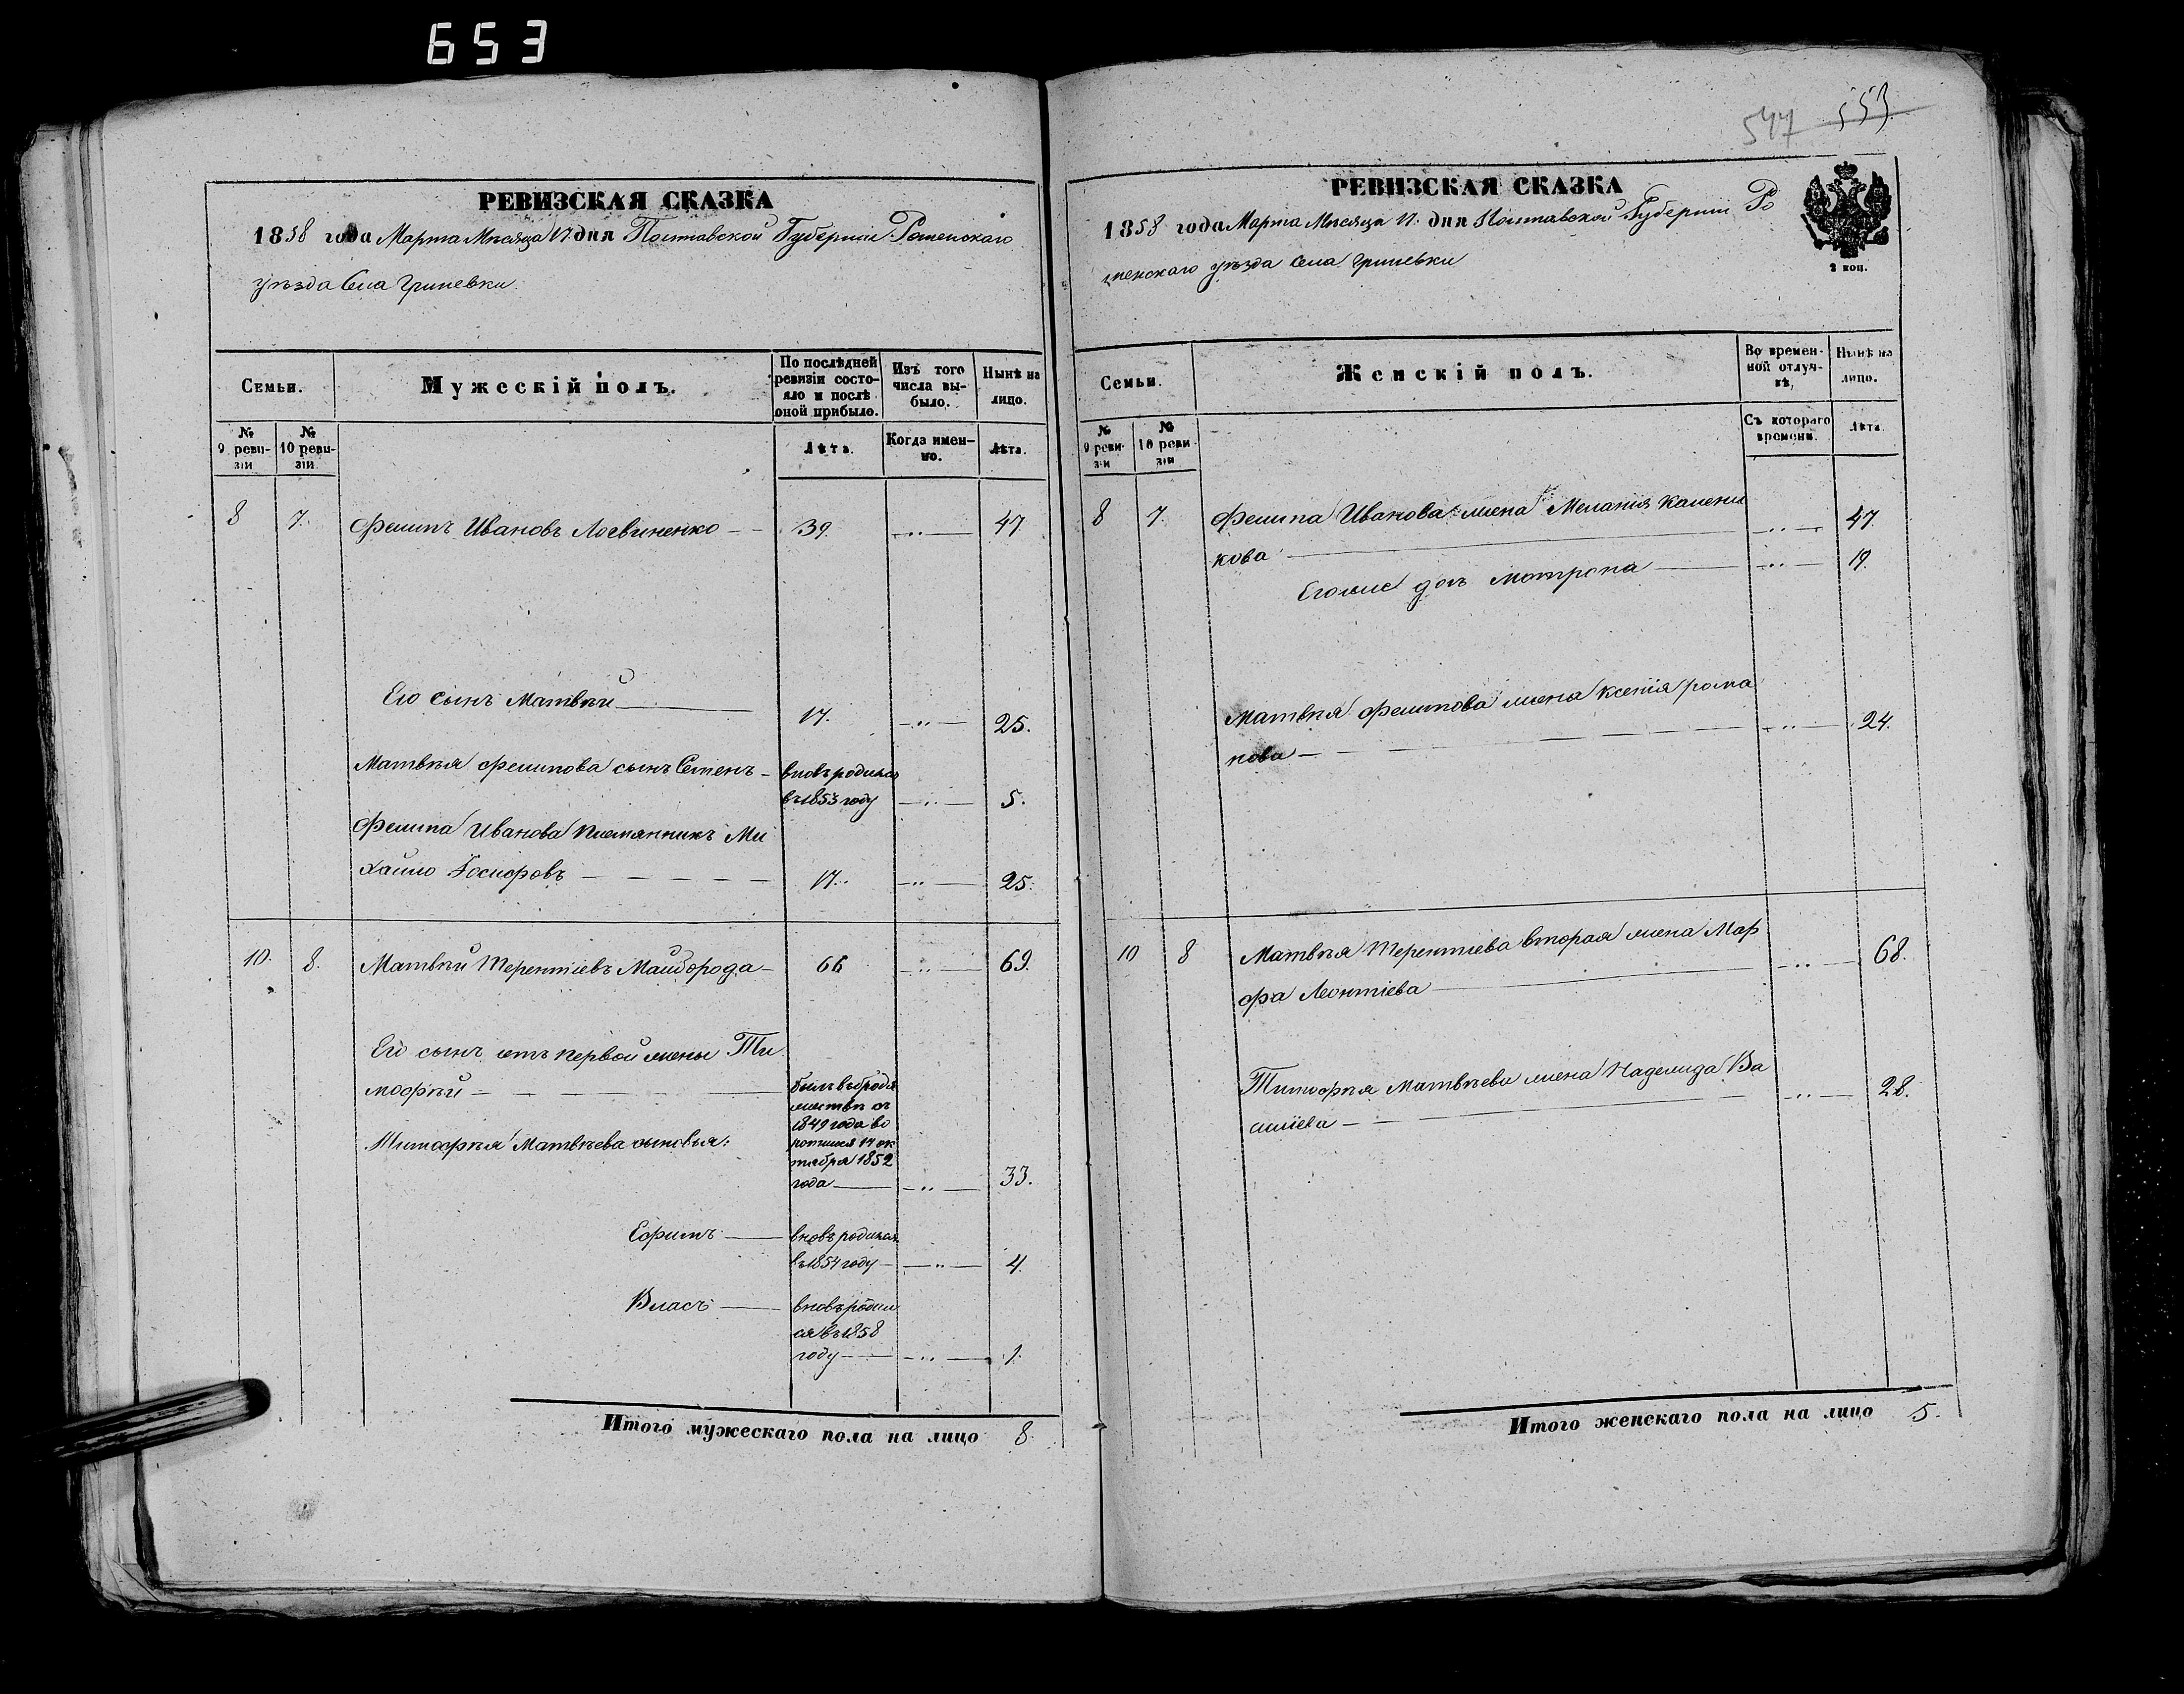 653
547 553
РЕВИЗСКАЯ СКАЗКА
1858 года Марта Мѣсяца 17 дня Полтавской Губерніи Роменскаго
уѣзда Села Гриневки.
Семьи.
Мужескій полъ.
По послѣдней ревизіи состояло и послѣ оной прибыло.
Изъ того числа выбыло.
Нынѣ на лицо.
№ 9 ревизіи
№ 10 ревизіи
Лѣта.
Когда именно.
Лѣта.
8 7. Филипъ Ивановъ Логвиненко 39. 47
Его сынъ Матвѣй 17. 25.
Матвѣя Филипова сынъ Семенъ вновьродился
въ 1853 году 5.
Филипа Иванова племянникъ Ми
хайло Іосифовъ 17. 25.
10. 8. Матвѣй Терентіевъ Майборода 66 69.
Его сынъ отъ первой жены Ти
мофѣй
былъ въ бродя
жествѣ съ
1849 года во
ротился 17 ок
тября 1852
года 33.
Тимофѣя Матвѣева сыновья:
Ефимъ вновьродился
въ 1854 году 4.
Власъ вновьродил
ся въ 1858
году 1.
Итого мужескаго пола на лицо 8.
РЕВИЗСКАЯ СКАЗКА
1858 года Марта Мѣсяца 17. дня Полтавской Губерніи Ро
менскаго уѣзда Села Гриневки
2 коп.
Семьи.
Женскій полъ.
Во временной отлучкѣ,
Нынѣ на лицо.
№ 9 ревизіи
№ 10 ревизіи
Съ котораго времени.
Лѣта.
8 7. Филипа Иванова жена Меланія Калени
кова 47.
Егоже дочь Мотрона 19.
Матвѣя Филипова жена Ксенія Рома
нова 24.
10 8 Матвѣя Терентіева вторая жена Мар
фа Леонтіева 68.
Тимофѣя Матвѣева жена Надежда Ва
силіева 28.
Итого женскаго пола на лицо 5.